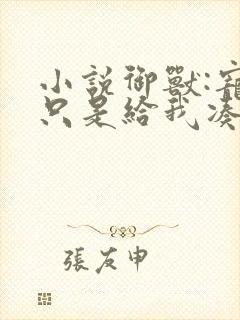 小說御獸:寵
只是給我湊
張友申